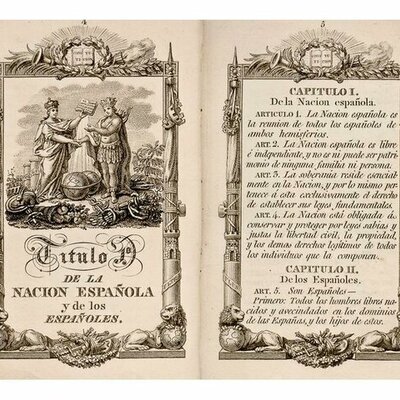 4
Título 1º
DE LA
NACION ESPAÑOLA
y de los
ESPAÑOLES.
5
CAPITULO I.
De la Nacion española.
ARTICULO 1. La Nacion española es
la reunion de todos los españoles de
ambos hemisferios.
ART. 2. La Nacion española es libre
é independiente, y no es ni puede ser patri-
monio de ninguna familia ni persona.
ART. 3. La soberania reside esencial-
mente en la Nacion, y por lo mismo per-
tenece á esta exclusivamente el derecho
de establecer sus leyes fundamentales.
ART. 4. La Nacion está obligada á
conservar y proteger por leyes sabias y
justas la libertad civil, la propiedad,
y los demas derechos legítimos de todos
los individuos que la componen.
CAPITULO II.
De los Españoles.
ART. 5. Son Españoles—
Primero: Todos los hombres libres na-
cidos y avecindados en los dominios
de las Españas, y los hijos de estos.